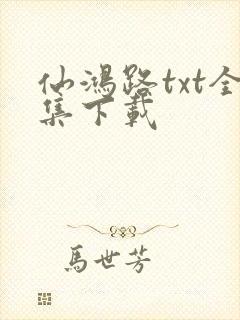 仙鴻路txt全
集下載
馬世芳